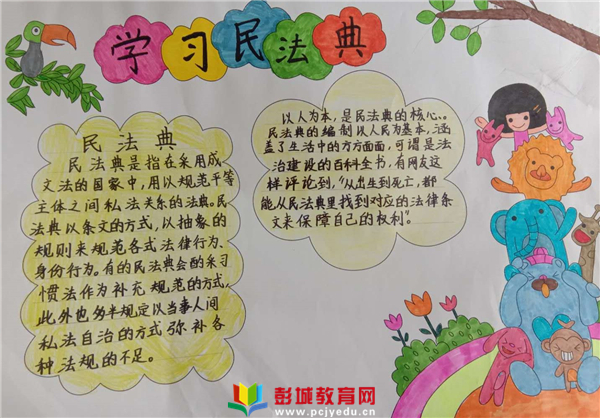 学习民法典
民法典
民法典是指在采用成
文法的国家中,用以规范平等
主体之间私法关系的法典。民
法典以条文的方式,以抽象的
规则来规范各式法律行为、
身份行为。有的民法典会的采习
惯法作为补充规范的方式,
此外也多半规定以当事人间
私法自治的方式弥补各
种法规的不足。
以人为本,是民法典的核心、。
民法典的编制以人民为基本,涵
盖了生活中的方方面面,可谓是法
治建设的百科全书,有网友这
样评论到,“从出生到死亡,都
能从民法典里找到对应的法律条
文来保障自己的权利”。
彭城教育网
www.pcjyedu.cn